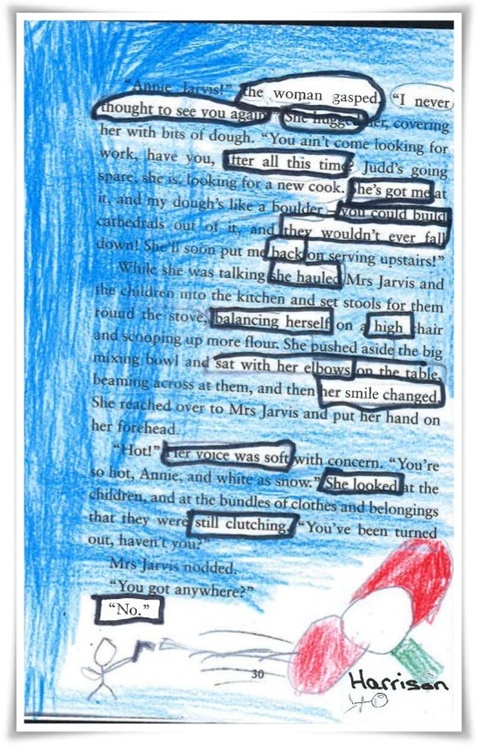 "Annie Jarvis!" the woman gasped. "I never
thought to see you again." She hugged her, covering
her with bits of dough. "You ain't come looking for
work, have you, after all this time? Judd's going
spare, she is, looking for a new cook. She's got me at
it, and my dough's like a boulder – you could build
cathedrals out of it, and they wouldn't ever fall
down! She'll soon put me back on serving upstairs!"
While she was talking she hauled Mrs Jarvis and
the children into the kitchen and set stools for them
round the stove, balancing herself on a high chair
and scooping up more flour. She pushed aside the big
mixing bowl and sat with her elbows on the table,
beaming across at them, and then her smile changed.
She reached over to Mrs Jarvis and put her hand on
her forehead.
"Hot!" Her voice was soft with concern. "You're
so hot, Annie, and white as snow." She looked at the
children, and at the bundles of clothes and belongings
that they were still clutching. "You've been turned
out, haven't you?"
Mrs Jarvis nodded.
"You got anywhere?"
"No."
30
Harrison